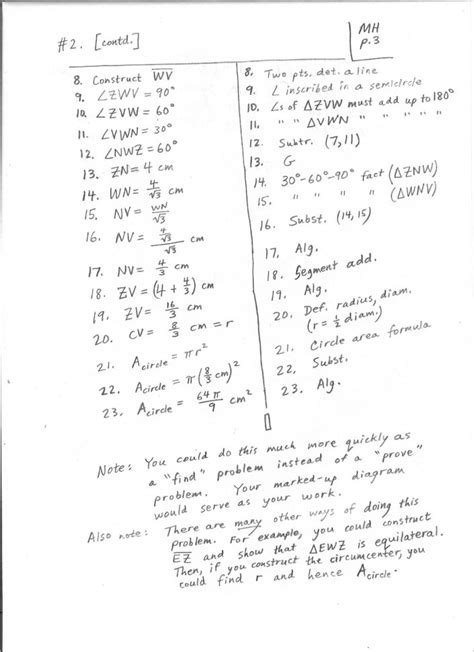 #2. [contd.]
MH
p.3
8. Construct W͞V͞
9. ∠ZWV = 90°
10. ∠ZVW = 60°
11. ∠VWN = 30°
12. ∠NWZ = 60°
13. ZN = 4 cm
14. WN = 4/√3 cm
15. NV = WN/√3
16. NV = (4/√3)/√3 cm
17. NV = 4/3 cm
18. ZV = (4 + 4/3) cm
19. ZV = 16/3 cm
20. CV = 8/3 cm = r
21. Acircle = πr²
22. Acircle = π(8/3 cm)²
23. Acircle = 64π/9 cm²
8. Two pts. det. a line
9. ∠ inscribed in a semicircle
10. ∠s of △ZVW must add up to 180°
11. " " △VWN " " " " "
12. Subtr. (7,11)
13. G
14. 30°-60°-90° fact (△ZNW)
15. " " " " (△WNV)
16. Subst. (14,15)
17. Alg.
18. Segment add.
19. Alg.
20. Def. radius, diam.
(r = ½ diam.)
21. Circle area formula
22. Subst.
23. Alg.
Note: You could do this much more quickly as
a "find" problem instead of a "prove"
problem. Your marked-up diagram
would serve as your work.
Also note: There are many other ways of doing this
problem. For example, you could construct
E͞Z͞ and show that △EWZ is equilateral.
Then, if you construct the circumcenter, you
could find r and hence Acircle.